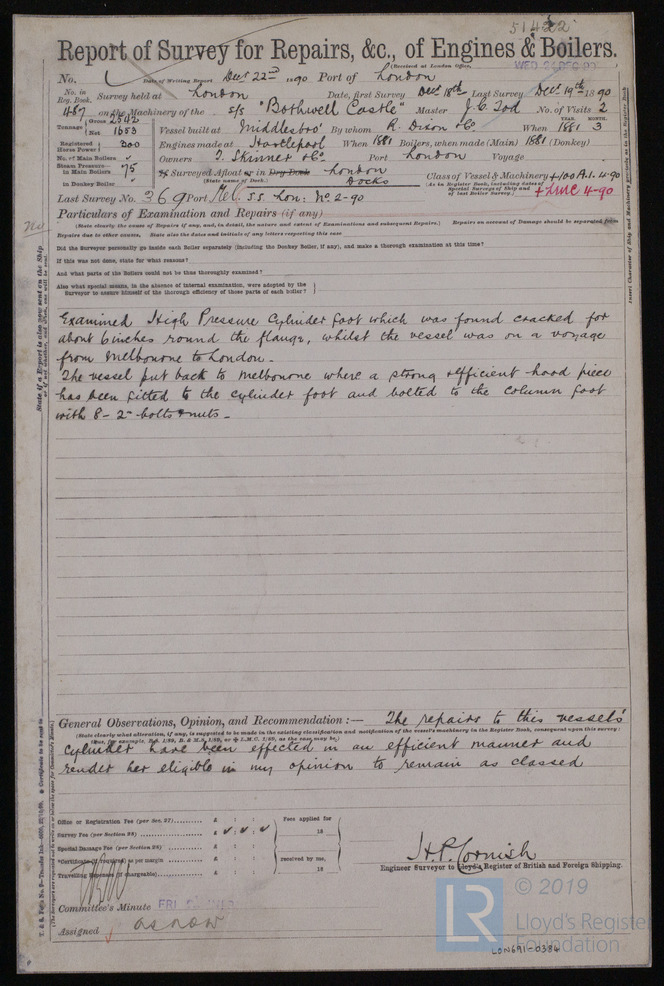 51422
Report of Survey for Repairs, &c., of Engines & Boilers.
(Received at London Office,
WED. 24 DEC 90
No. Date of Writing Report Decr 22nd 1890 Port of London
No. in Reg. Book. Survey held at London Date, first Survey Decr 18th Last Survey Decr 19th 1890
487 on the Machinery of the s/s "Bothwell Castle" Master J. C. Tod No. of Visits 2
Tonnage Gross 2542
Net 1653
Vessel built at Middlesbro' By whom R. Dixon & Co. When YEAR. 1881 MONTH. 3
Registered Horse Power 300 Engines made at Hartlepool When 1881 Boilers, when made (Main) 1881 (Donkey)
No. of Main Boilers Owners T. Skinner & Co. Port London Voyage
Steam Pressure— in Main Boilers 75 Surveyed Afloat or in Dry Dock London Docks
(State name of Dock.)
in Donkey Boiler
Class of Vessel & Machinery +100 A1. 4-90
(As in Register Book, including dates of Special Surveys of Ship and of last Boiler Survey.) +LMC 4-90
Last Survey No. 369 Port Mel. S.S. Lon: No. 2-90
Particulars of Examination and Repairs (if any)
(State clearly the cause of Repairs if any, and, in detail, the nature and extent of Examinations and subsequent Repairs.) Repairs on account of Damage should be separated from
Repairs due to other causes. State also the dates and initials of any letters respecting this case
Did the Surveyor personally go inside each Boiler separately (including the Donkey Boiler, if any), and make a thorough examination at this time?
If this was not done, state for what reasons?
And what parts of the Boilers could not be thus thoroughly examined?
Also what special means, in the absence of internal examination, were adopted by the
Surveyor to assure himself of the thorough efficiency of those parts of each boiler?
Examined High Pressure Cylinder foot which was found cracked for
about 6 inches round the flange, whilst the vessel was on a voyage
from Melbourne to London.
The vessel put back to Melbourne where a strong & efficient hood piece
has been fitted to the cylinder foot and bolted to the column foot
with 8 - 2" bolts & nuts.
General Observations, Opinion, and Recommendation:— The repairs to this vessel's
(State clearly what alteration, if any, is suggested to be made in the existing classification and notification of the vessel's machinery in the Register Book, consequent upon this survey:
cylinder have been effected in an efficient manner and
render her eligible in my opinion to remain as classed
Office or Registration Fee (per Sec. 27) £ : : Fees applied for
Survey Fee (per Section 28) £ 18
Special Damage Fee (per Section 28) £ : :
*Certificate (if required) as per margin £ : : received by me,
Travelling Expenses (if chargeable) £ : : 18
H. P. Cornish
Engineer Surveyor to Lloyd's Register of British and Foreign Shipping.
Committee's Minute
Assigned as now
© 2019
LR
Lloyd's Register
Foundation
LON691-0384